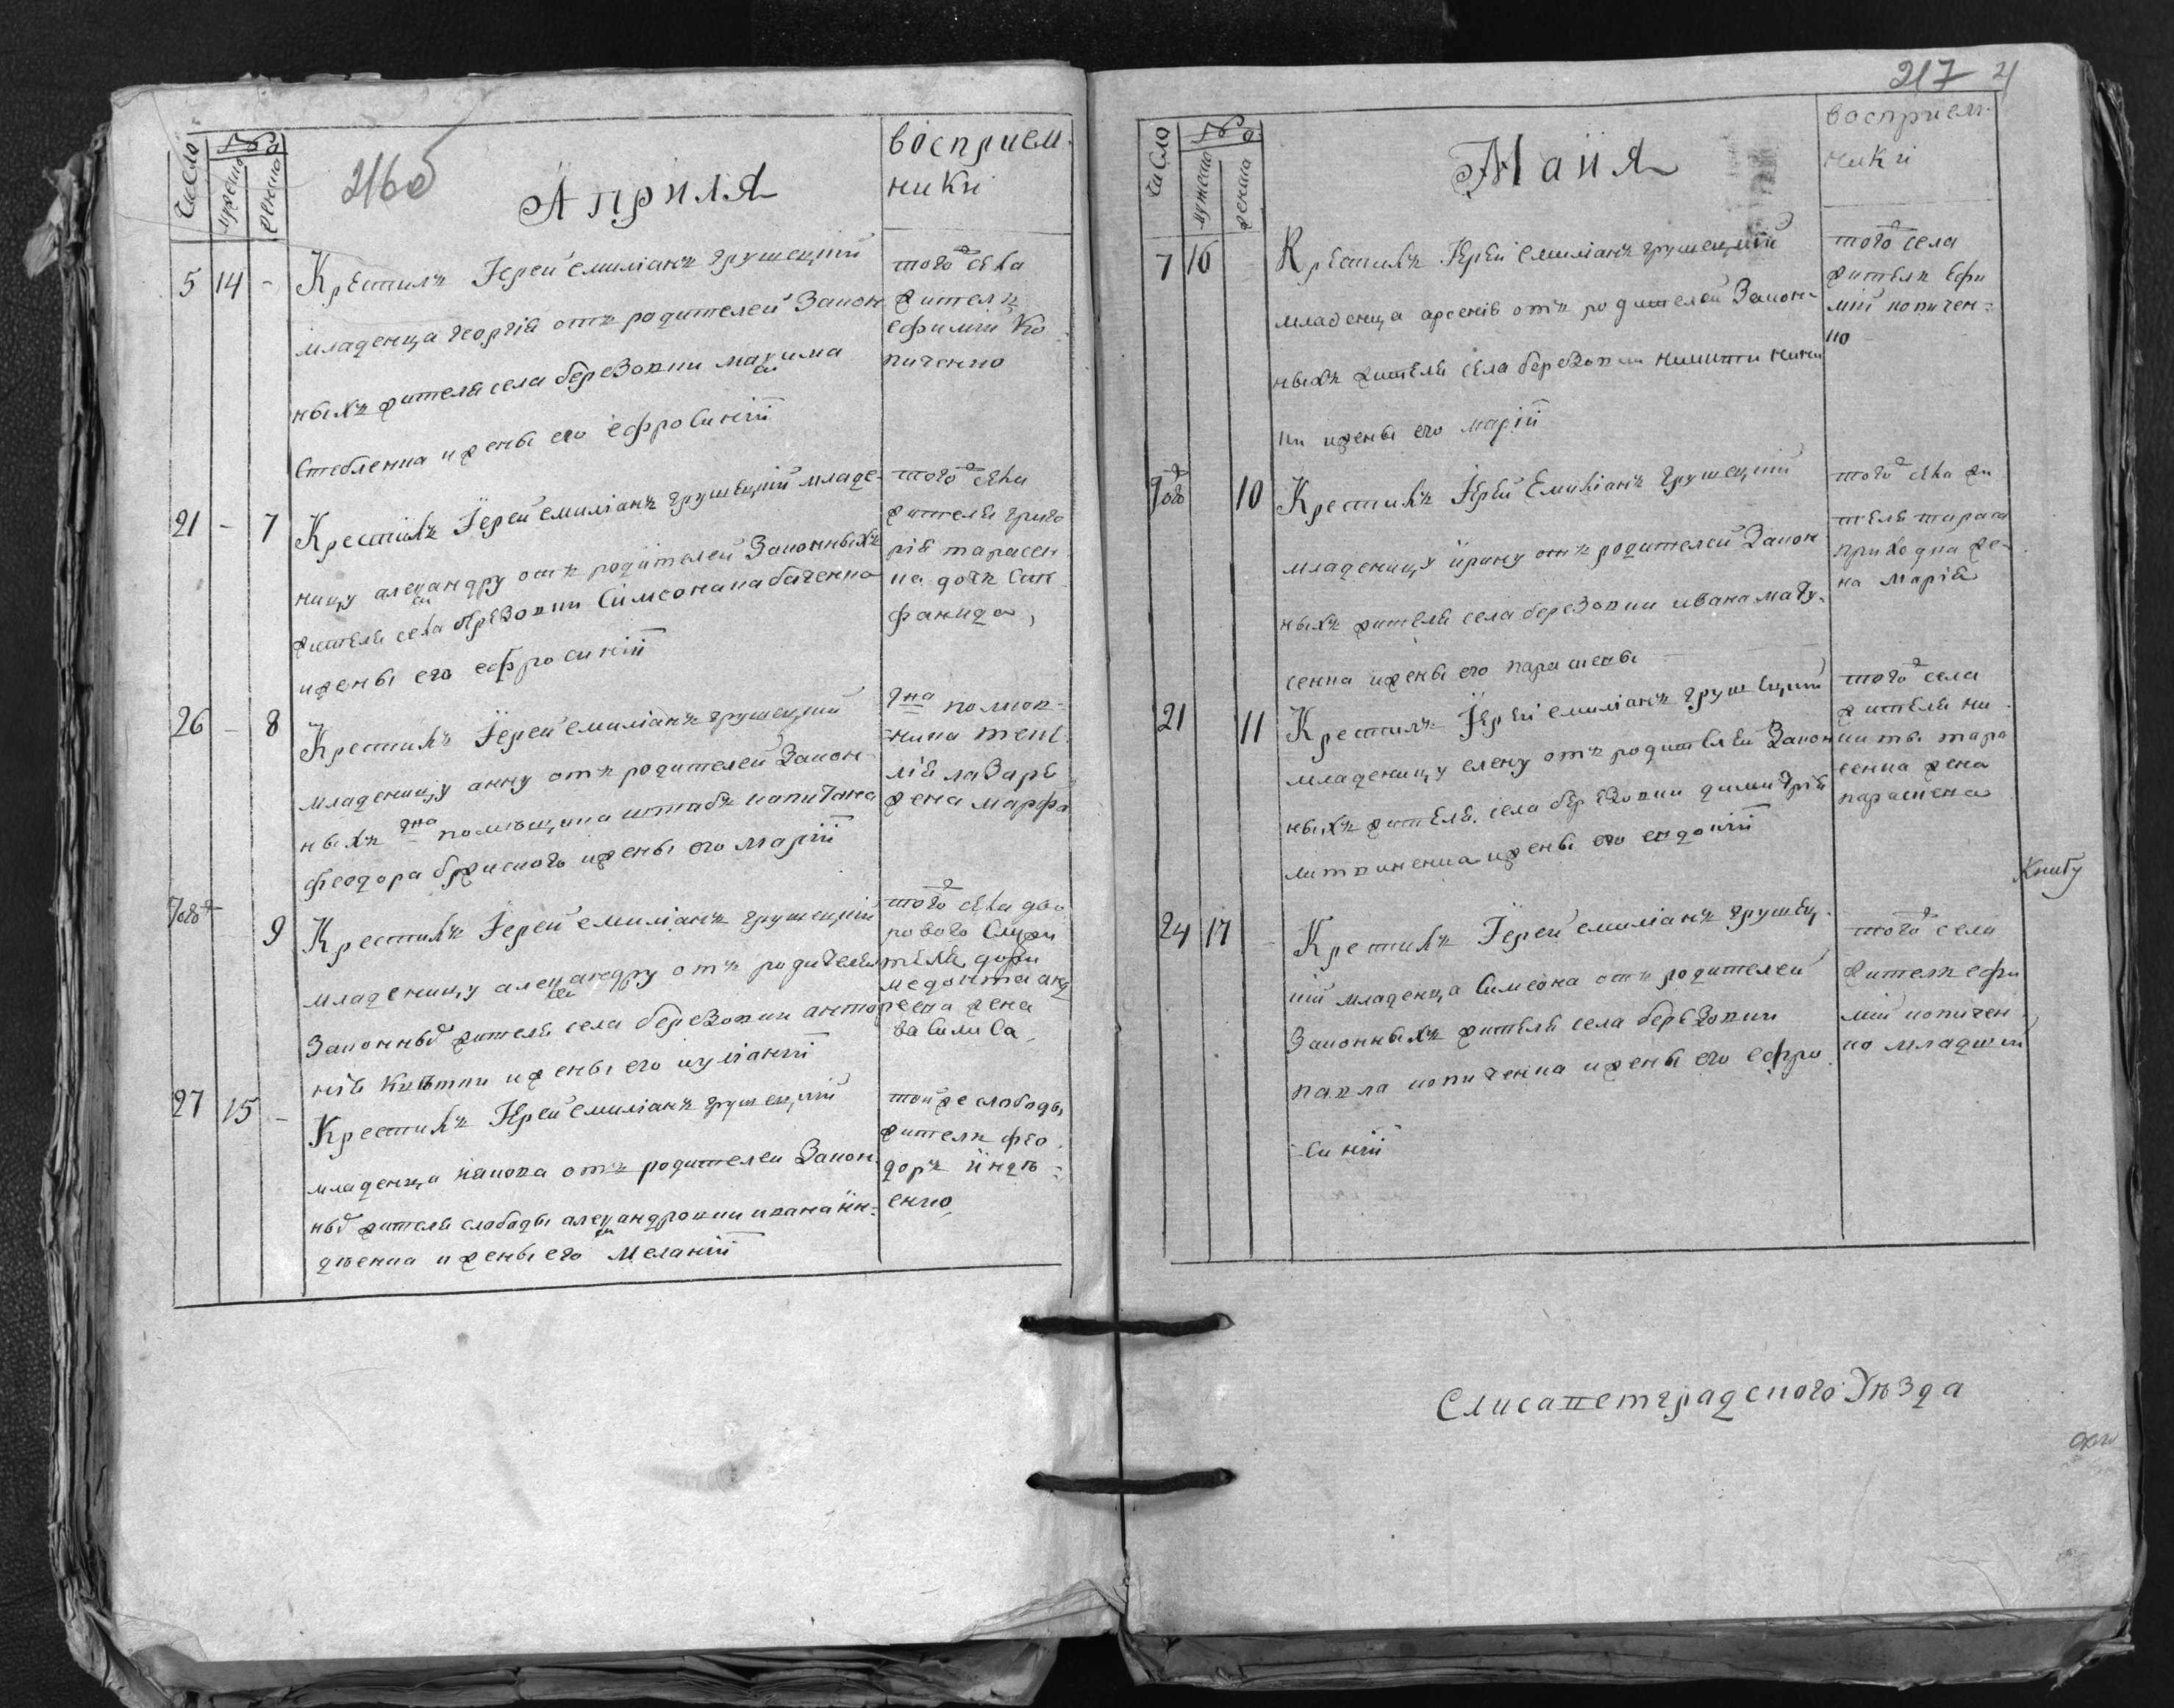 число
№
мужеско
женско
216об
Априля
восприем-
ники
5 14 - Крестилъ Iерей емилианъ грушецкий
младенца георгiя отъ родителей Закон
ныхъ жителя села березовки максима
Стебленка и жены его ефросинiи
того ж села
жителъ
ефимий Ко
пиченко
21 - 7 Крестилъ Iерей емилiанъ грушецкий младе-
ницу александру отъ родителей Законныхъ
жителя села березовки Симеона кабаченка
и жены его ефросинiи
того ж села
жителя григо
рiя тарасен
ка дочь
фанида,
26 - 8 Крестилъ Iерей емилiанъ грушецкий
младеницу анну отъ родителей Закон-
ныхъ гна помещика штабъ капитана
феодора и жены его марiи
гна полков-
ника
лiя лазаря
жена марфа
Тогож 9 Крестилъ Iерей емилiанъ грушецкий
младеницу александру отъ родителей
Законных жителя села березовки анто
нiя и жены его иулiанiи
того ж села дво
рового служи
теля

жена
василиса,
27 15 - Крестилъ Iерей емилiанъ грушецкий
младенца iякова отъ родителей Закон
ных жителя слободы александровки ивана ин-
дченка и жены его меланiи
той же слободы
жителъ фео
доръ индч-
енко,
217
число
№
мужеско
женска
Маия
восприем-
ники
7 16 Крестилъ Iерей емилианъ грушецкий
младенца арсенiя отъ родителей Закон-
ныхъ жителя села березовки никиты
ки и жены его марiи
того ж села
жителъ ефи
мий копичен-
ко
Тогож 10 Крестилъ Iерей Емилiанъ грушецкий
младеницу ирину отъ родителей Закон
ныхъ жителя села березовки ивана
сенка и жены его параскевы
того ж села жи
теля тараса
приходка же-
на марiя
21 11 Крестилъ Iерей емилiанъ грушецкий
младеницу елену отъ родителей Закон
ныхъ жителя села березовки димитрiя
литвиненка и жены его евдокiи
того ж села
жителя ни
киты тара
сенка жена
параскева
24 17 - Крестилъ Iерей емилiанъ грушец-
кий младенца Симеона отъ родителей
Законныхъ жителя села березовки
павла копиченка и жены его ефро
синiи
того ж села
жителъ ефи
мий копичен
ко младший
Книгу
Елисаветградского Уезда